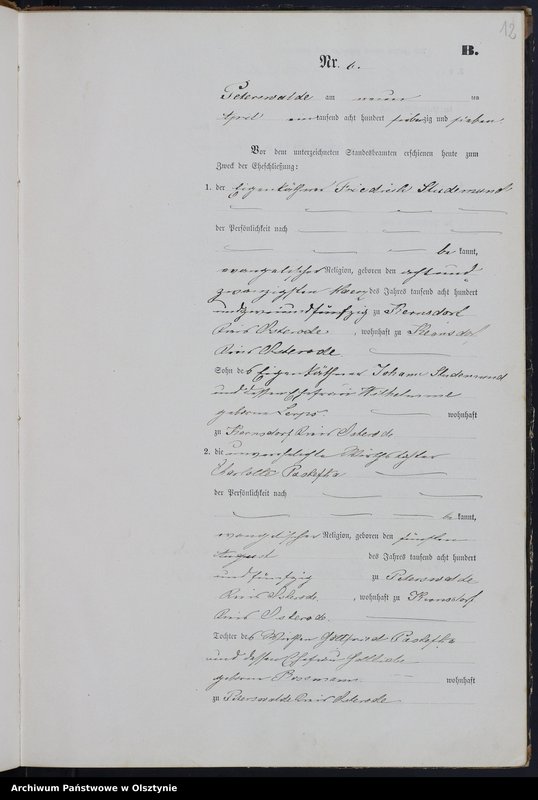 12
B.
Nr. 6.
Peterswalde am neun ten
April eintausend acht hundert siebenzig und sieben.
Vor dem unterzeichneten Standesbeamten erschienen heute zum
Zweck der Eheschließung:
1. der Eigenkäthner Friedrich Studemund
der Persönlichkeit nach
be kannt,
evangelischer Religion, geboren den acht und
zwanzigsten März des Jahres tausend acht hundert
und zwei und fünfzig zu Kernsdorf
Kreis Osterode, wohnhaft zu Kernsdorf
Kreis Osterode
Sohn des Eigenkäthner Johann Studemund
und dessen Ehefrau Wilhelmine
geborne wohnhaft
zu Kernsdorf Kreis Osterode
2. die unverehelichte Wirthstochter
Charlotte
der Persönlichkeit nach
be kannt,
evangelischer Religion, geboren den fünften
August des Jahres tausend acht hundert
und fünfzig zu Peterswalde
Kreis Osterode, wohnhaft zu Kernsdorf
Kreis Osterode.
Tochter des Wirthen Gottfried
und dessen Ehefrau
geborne wohnhaft
zu Peterswalde Kreis Osterode
Archiwum Państwowe w Olsztynie